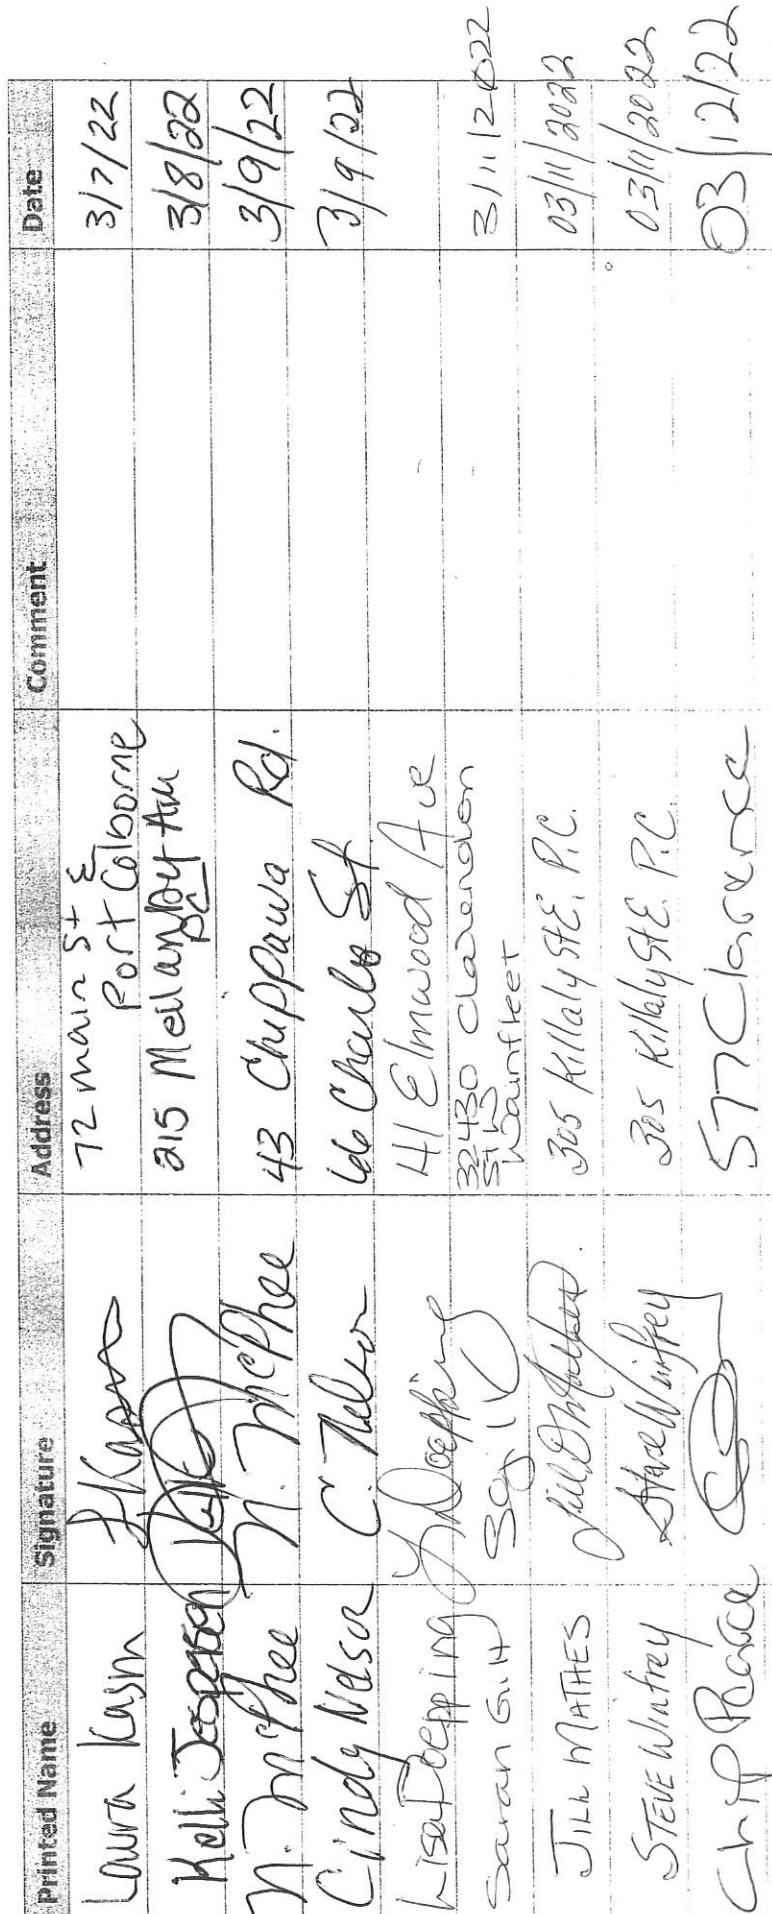 Printed Name Signature Address Comment Date
Laura Kasm L Kasm 72 main St E 3/7/22
Port Colborne
Kelli 215 Mellanby Ave 3/8/22
PC
N. McPhee N. McPhee 43 Chippawa Rd. 3/9/22
Cindy Nelson C. Nelson 66 Charles St. 3/9/22
Lisa Doepping L Doepping 41 Elmwood Ave
Sarah Gill 32430 Clarendon 3/11/2022
St W
Wainfleet
JILL MATHES 305 Killaly St E. P.C. 03/11/2022
STEVE Winfrey Steve Winfrey 305 Killaly St E. P.C. 03/11/2022
Chip Pearce 577 Clarence 03/12/22